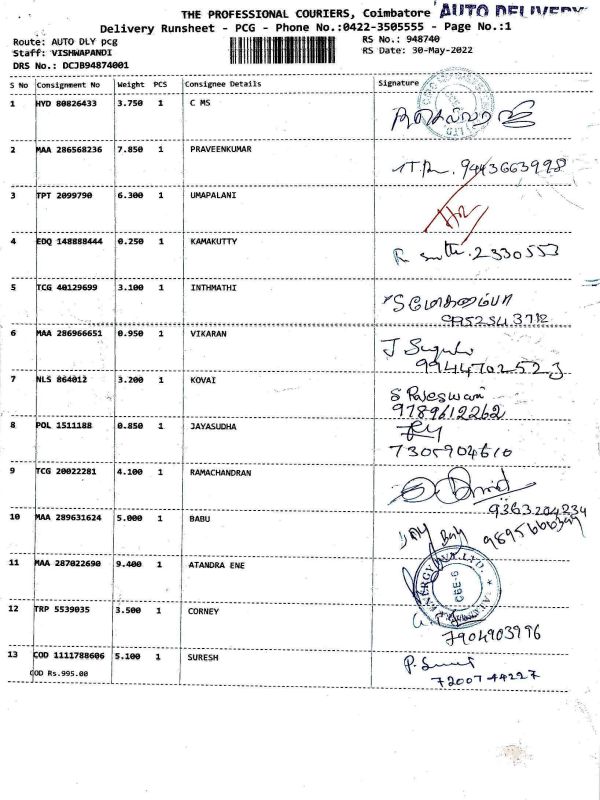 THE PROFESSIONAL COURIERS, Coimbatore AUTO DELIVERY
Delivery Runsheet - PCG - Phone No.:0422-3505555 - Page No.:1
Route: AUTO DLY pcg RS No.: 948740
Staff: VISHWAPANDI RS Date: 30-May-2022
DRS No.: DCJB94874001
S No Consignment No Weight PCS Consignee Details Signature
1 HYD 80826433 3.750 1 C MS
2 MAA 286568236 7.850 1 PRAVEENKUMAR
9443663998
3 TPT 2099790 6.300 1 UMAPALANI
4 EDQ 148888444 0.250 1 KAMAKUTTY
2330553
5 TCG 40129699 3.100 1 INTHMATHI
9952543712
6 MAA 286966651 0.950 1 VIKARAN
9944702523
7 NLS 864012 3.200 1 KOVAI
9789612262
8 POL 1511188 0.850 1 JAYASUDHA
7305904610
9 TCG 20022281 4.100 1 RAMACHANDRAN
9363204234
10 MAA 289631624 5.000 1 BABU
11 MAA 287022690 9.400 1 ATANDRA ENE
12 TRP 5539035 3.500 1 CORNEY
7904903996
13 COD 1111788606 5.100 1 SURESH
COD Rs.995.00
7200744227